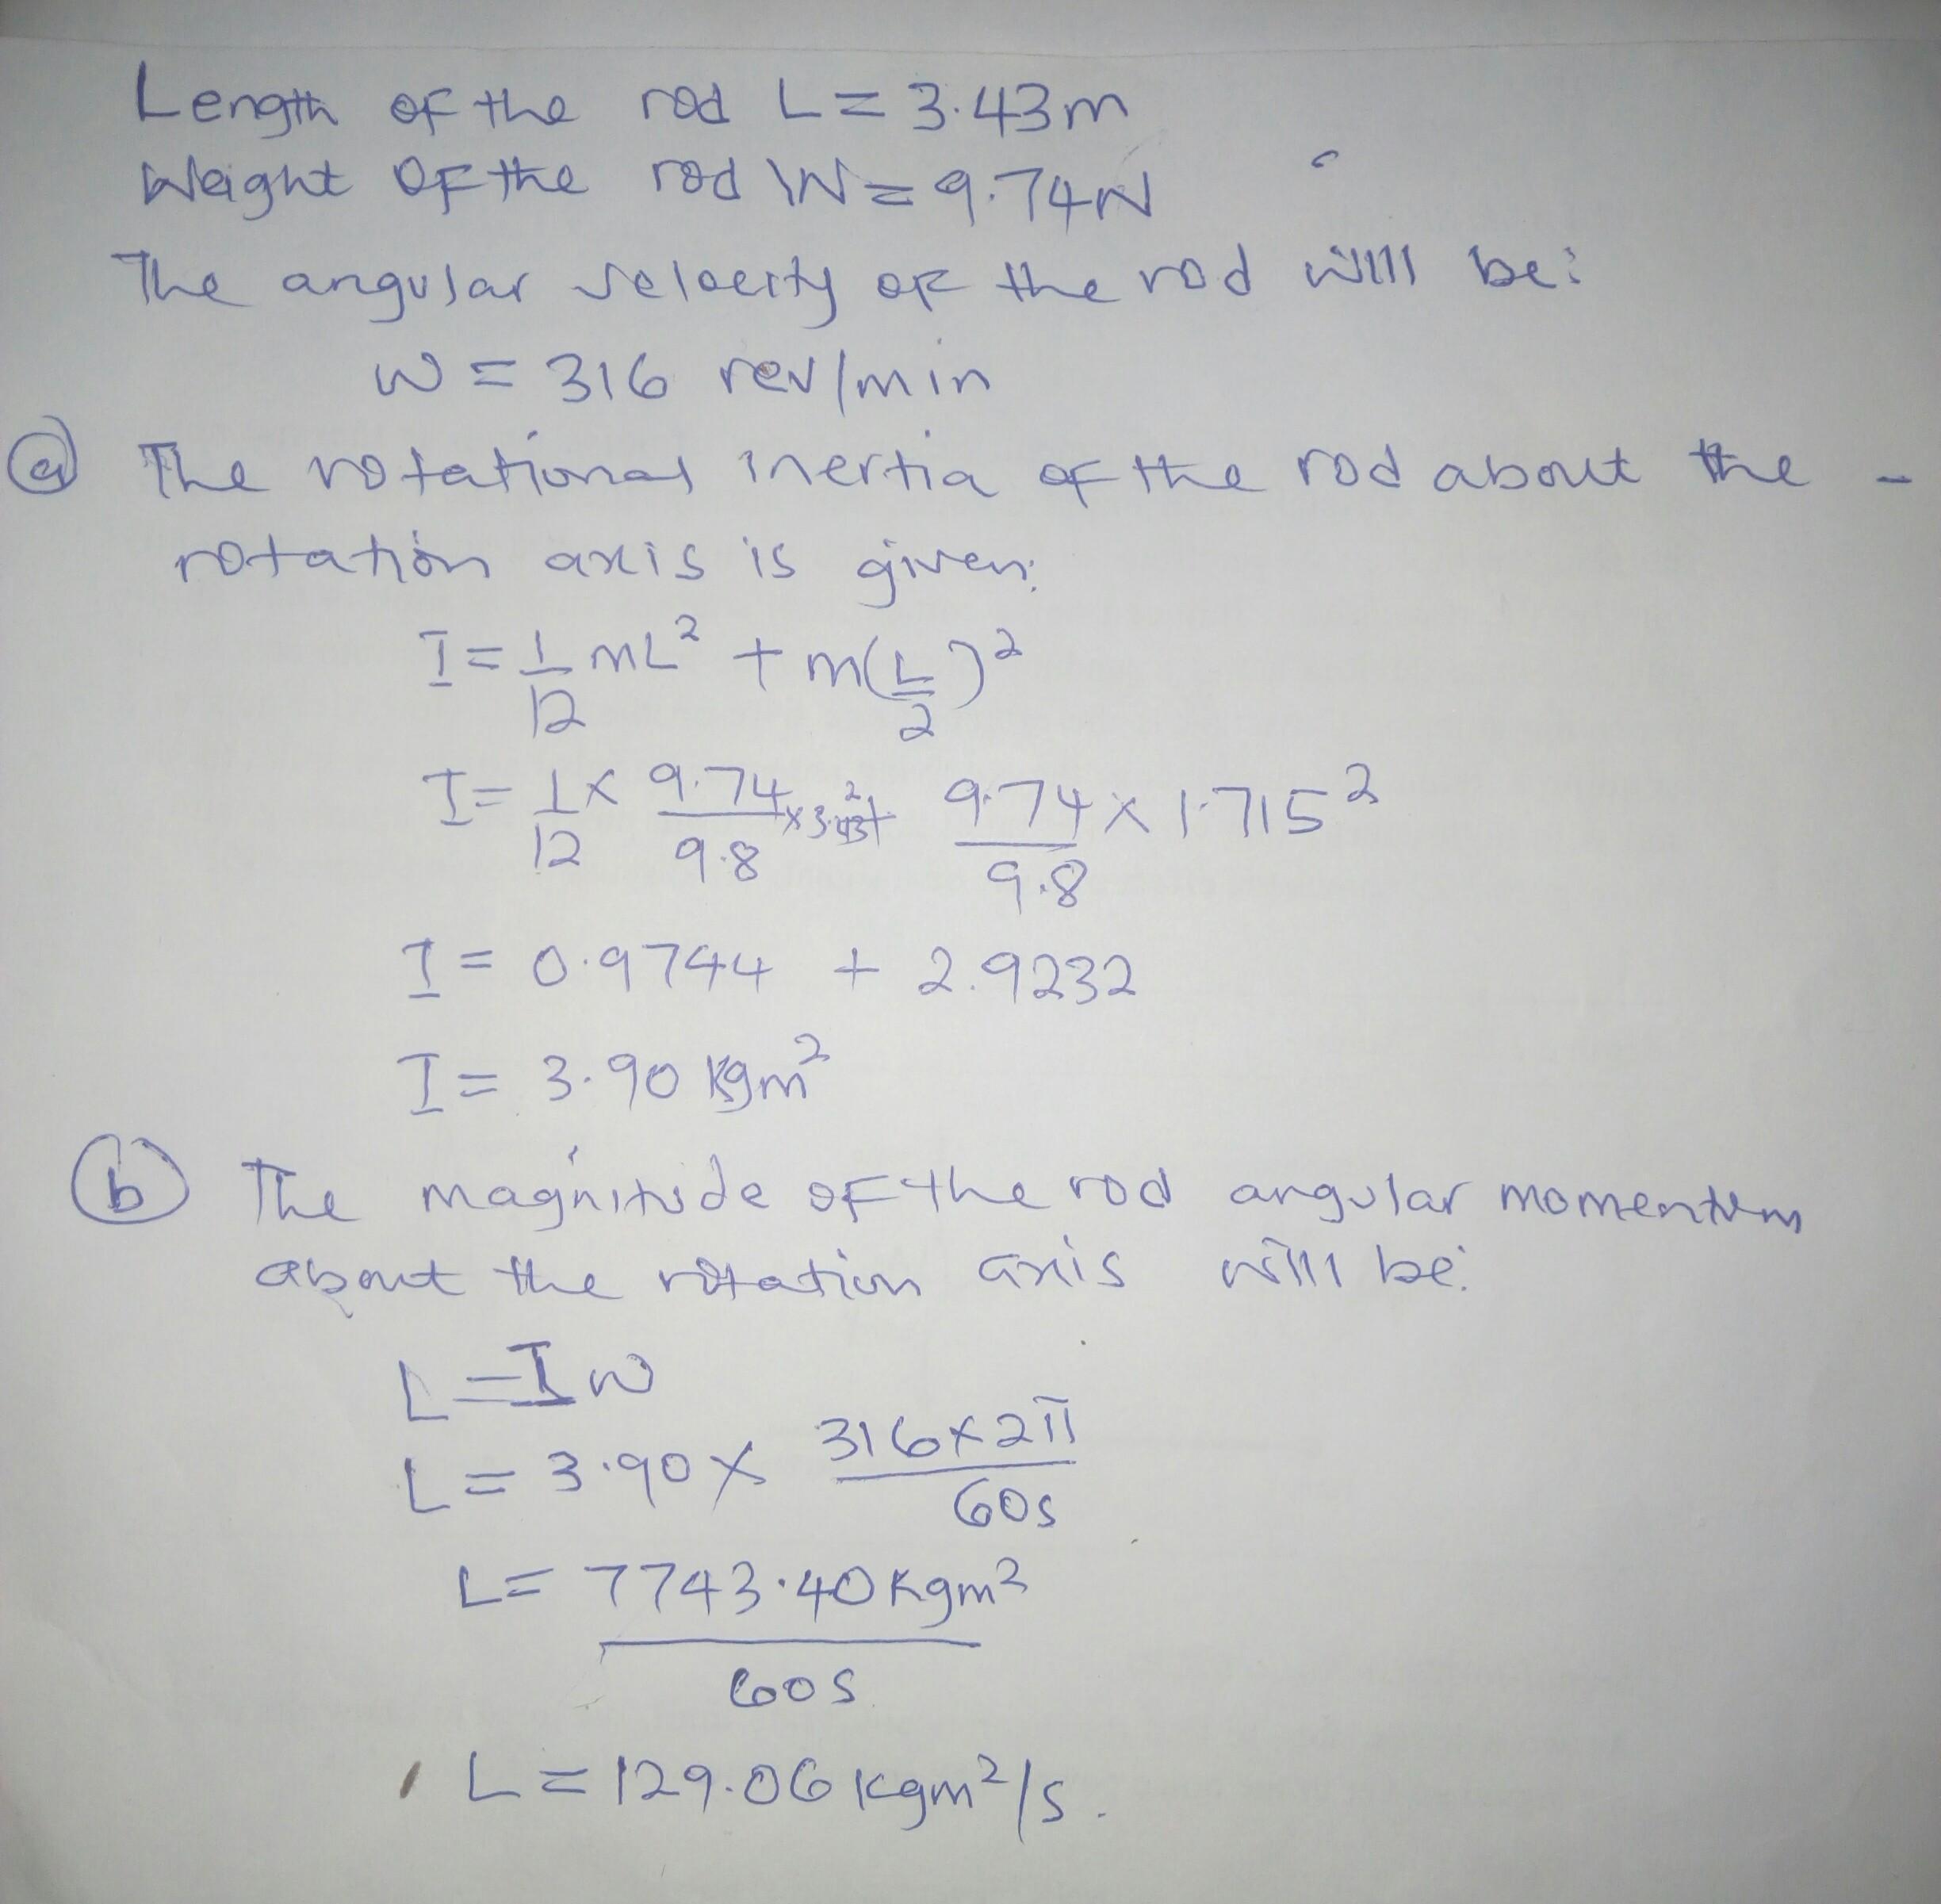 Length of the rod L = 3.43m
Weight of the rod W = 9.74N
The angular velocity of the rod will be:
w = 316 rev/min
(a) The rotational inertia of the rod about the -
rotation axis is given:
I = 1/12 mL² + m(L/2)²
I = 1/12 × 9.74/9.8 × 3.43² + 9.74/9.8 × 1.715²
I = 0.9744 + 2.9232
I = 3.90 kgm²
(b) The magnitude of the rod angular momentum
about the rotation axis will be:
L = Iw
L = 3.90 × 316×2π/60s
L = 7743.40kgm²/60s
L = 129.06 kgm²/s.